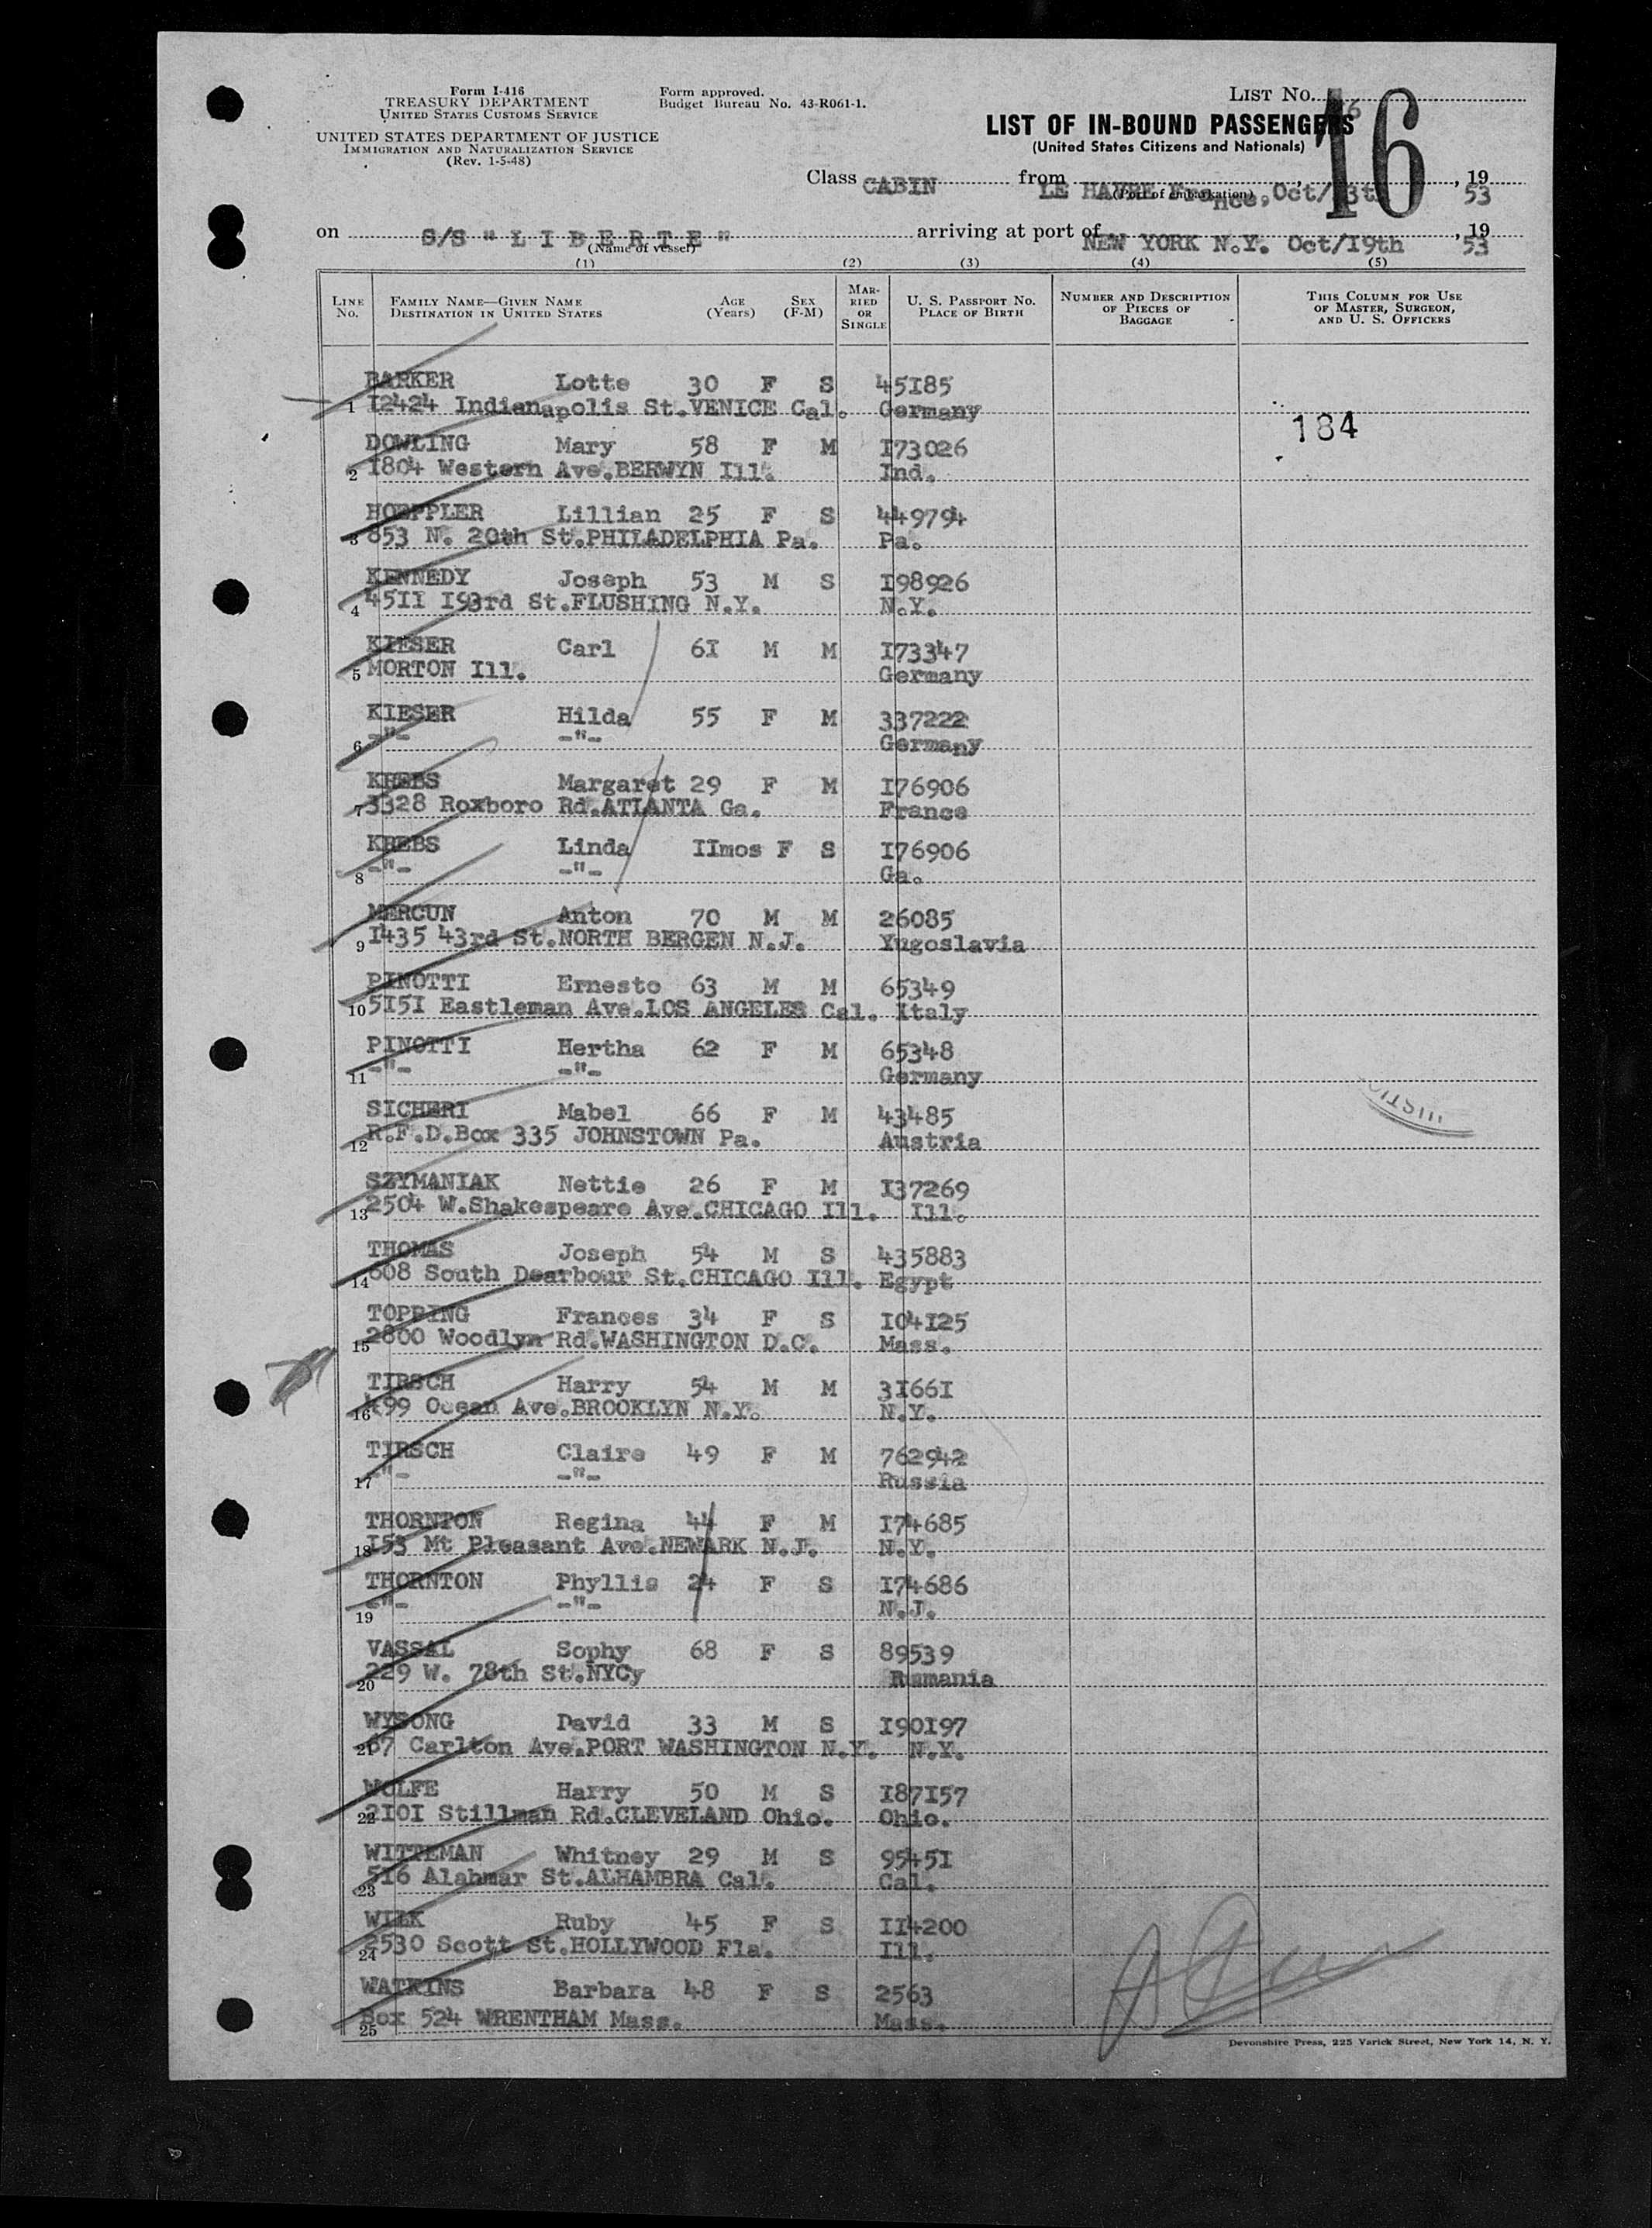 Form I-416
TREASURY DEPARTMENT
UNITED STATES CUSTOMS SERVICE
UNITED STATES DEPARTMENT OF JUSTICE
IMMIGRATION AND NATURALIZATION SERVICE
(Rev. 1-5-48)
Form approved.
Budget Bureau No. 43-R061-1.
LIST No. 16
LIST OF IN-BOUND PASSENGERS
(United States Citizens and Nationals)
Class CABIN from LE HAVRE France, Oct/13th, 19 53
(Port of embarkation)
on S/S "LIBERTE" arriving at port of NEW YORK N.Y. Oct/19th, 19 53
(Name of vessel)
(1) (2) (3) (4) (5)
LINE No. FAMILY NAME—GIVEN NAME DESTINATION IN UNITED STATES AGE (Years) SEX (F-M) MARRIED OR SINGLE U. S. PASSPORT No. PLACE OF BIRTH NUMBER AND DESCRIPTION OF PIECES OF BAGGAGE THIS COLUMN FOR USE OF MASTER, SURGEON, AND U. S. OFFICERS
BARKER Lotte 30 F S 45185
1 12424 Indianapolis St.VENICE Cal. Germany
184
DOWLING Mary 58 F M I73026
2 1804 Western Ave.BERWYN Ill. Ind.
HOEPPLER Lillian 25 F S 449794
3 853 N. 20th St.PHILADELPHIA Pa. Pa.
KENNEDY Joseph 53 M S I98926
4 45II I93rd St.FLUSHING N.Y. N.Y.
KIESER Carl 6I M M I73347
5 MORTON Ill. Germany
KIESER Hilda 55 F M 337222
6 -"- -"- Germany
KREBS Margaret 29 F M I76906
7 3328 Roxboro Rd.ATLANTA Ga. France
KREBS Linda IImos F S I76906
8 -"- -"- Ga.
MERCUN Anton 70 M M 26085
9 I435 43rd St.NORTH BERGEN N.J. Yugoslavia
PINOTTI Ernesto 63 M M 65349
10 5I5I Eastleman Ave.LOS ANGELES Cal. Italy
PINOTTI Hertha 62 F M 65348
11 -"- -"- Germany
SICHERI Mabel 66 F M 43485
12 R.F.D.Box 335 JOHNSTOWN Pa. Austria
SZYMANIAK Nettie 26 F M I37269
13 2504 W.Shakespeare Ave.CHICAGO Ill. Ill.
THOMAS Joseph 54 M S 435883
14 608 South Dearbour St.CHICAGO Ill. Egypt
TOPPING Frances 34 F S I04I25
15 2800 Woodlyn Rd.WASHINGTON D.C. Mass.
TIRSCH Harry 54 M M 3I66I
16 499 Ocean Ave.BROOKLYN N.Y. N.Y.
TIRSCH Claire 49 F M 762942
17 -"- -"- Russia
THORNTON Regina 44 F M I74685
18 I53 Mt Pleasant Ave.NEWARK N.J. N.Y.
THORNTON Phyllis 24 F S I74686
19 -"- -"- N.J.
VASSAL Sophy 68 F S 89539
20 229 W. 78th St.NYCy Rumania
WYSONG David 33 M S I90I97
21 67 Carlton Ave.PORT WASHINGTON N.Y. N.Y.
WOLFE Harry 50 M S I87I57
22 2I0I Stillman Rd.CLEVELAND Ohio. Ohio.
WITTEMAN Whitney 29 M S 9545I
23 516 Alahmar St.ALHAMBRA Cal. Cal.
WILK Ruby 45 F S II4200
24 2530 Scott St.HOLLYWOOD Fla. Ill.
WATKINS Barbara 48 F S 2563
25 Box 524 WRENTHAM Mass. Mass.
Devonshire Press, 225 Varick Street, New York 14, N. Y.